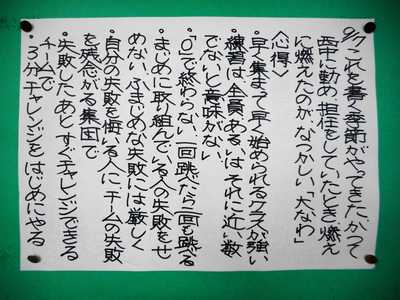 9/7 これを書く季節がやってきた。かつて
西中に勤め、担任をしていたとき、燃え
に燃えたのがなつかしい「大なわ」
〈心得〉
・早く集まって早く始められるクラスが強い
・練習は全員あるいはそれに近い数
でないと意味がない
・「0」で終わらない。一回跳べたら二回も跳べる
・まじめに取り組んでいる人の失敗をせ
めない、ふまじめな失敗には厳しく
・自分の失敗を悔いる人に、チームの失敗
を残念がる集団で
・失敗したあと、すぐチャレンジできる
チームで
・3分チャレンジをはじめにやる